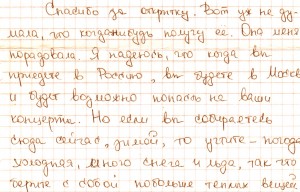 Спасибо за открытку. Вот уж не ду-
мала, что когда-нибудь получу её. Она меня
порадовала. Я надеюсь, что когда вы
приедете в Россию, вы будете в Москве
и будет возможно попасть на ваши
концерты. Но если вы собираетесь
сюда сейчас, зимой, то учтите - погода
холодная, много снега и льда, так что
берите с собой побольше теплых вещей.